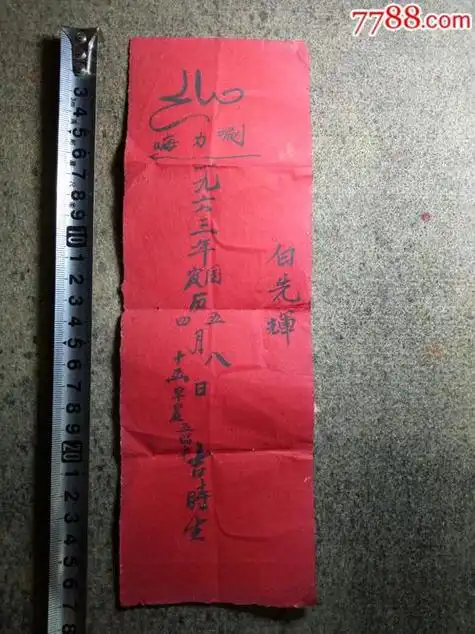 7788.com
先輝
一九六三年
国
农历
五
四
月
八日
十五早晨五
吉時生
3 4 5 6 7 8 9 10 1 2 3 4 5 6 7 8 9 20 1 2 3 4 5 6